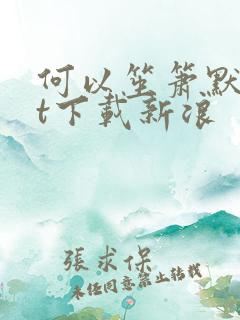 何以笙箫默
t下载新浪
張求保
未经同意禁止转载